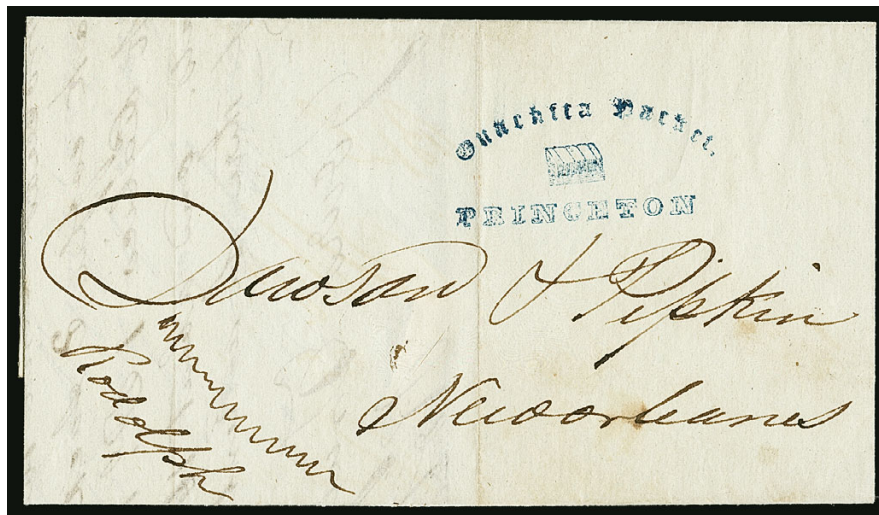 Ouachita Packet.
PRINCETON
Dawson & Pipkin
Neworleanes
Rodolph